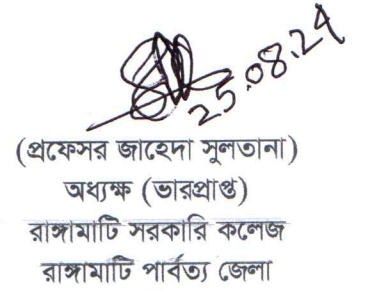 25.08.24
(প্রফেসর জাহেদা সুলতানা)
অধ্যক্ষ (ভারপ্রাপ্ত)
রাঙ্গামাটি সরকারি কলেজ
রাঙ্গামাটি পার্বত্য জেলা